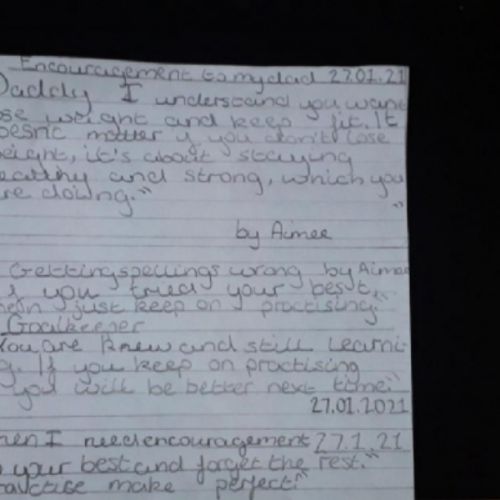 Encouragement to my dad 27.01.21
Daddy I understand you want
ose weight and keep fit. It
oesn't matter if you don't lose
eight, it's about staying
ealthy and strong, which you
re doing."
"
by Aimee
Gettting spellings wrong by Aimee
f you tried your best,
hen just keep on practising."
Goalkeeper
You are knew and still learni-
g. If you keep on practising
you will be better next time."
27.01.2021
hen I need encouragement 27.1.21
o your best and forget the rest."
ractise make perfect."